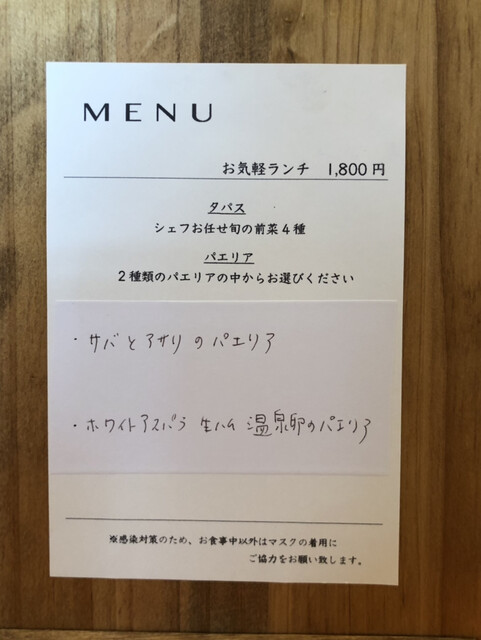 MENU
お気軽ランチ 1,800円
タパス
シェフお任せ旬の前菜4種
パエリア
2種類のパエリアの中からお選びください
・サバとアサリのパエリア
・ホワイトアスパラ 生ハム 温泉卵のパエリア
※感染対策のため、お食事中以外はマスクの着用に
ご協力をお願い致します。